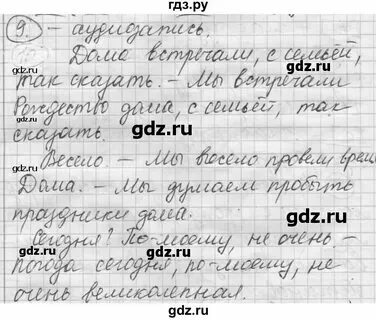 гдз.ру
9. – аудиозапись.
Дома встречали, с семьей,
так сказать. – Мы встречали
Рождество дома, с семьёй, так
сказать.
Весело – Мы весело провели время
Дома. – Мы думаем пробыть
праздники дома.
Сегодня? По-моему, не очень, –
погода сегодня, по-моему, не
очень великолепная.
gdz.ru
gdz.ru
gdz.ru
gdz.ru
gdz.ru
gdz.ru
gdz.ru
gdz.ru